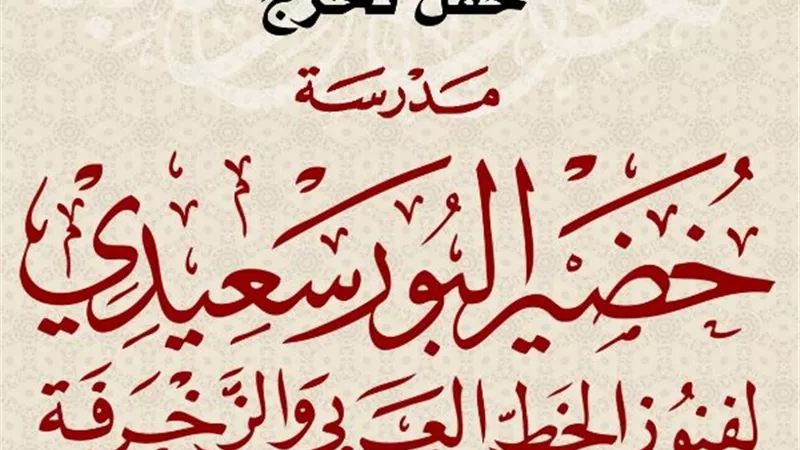 حفل تخرج
مَدْرسَة
خُضَير البُورسَعِيدِي
لفنون الخَطّ العَربي وَالزَّخْرَفَة